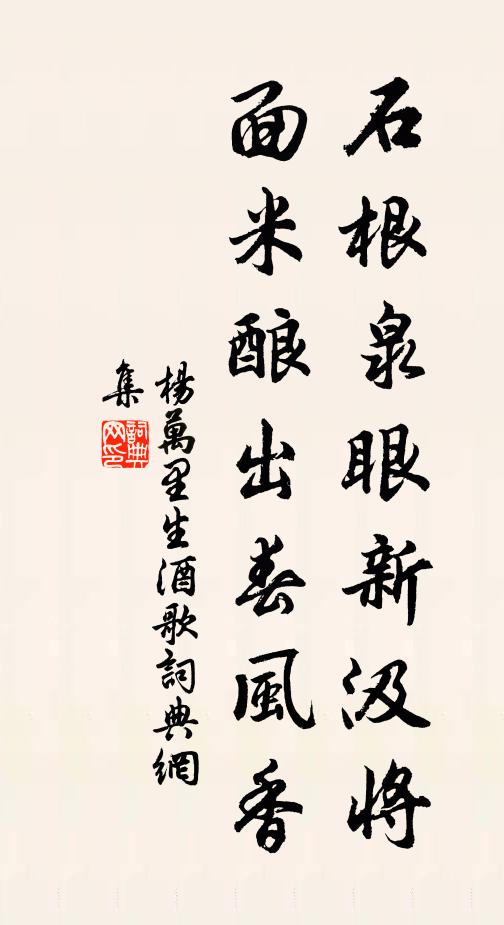 石根泉眼新汲將
面米酿出春風香
楊萬里生酒歌詞典網
集
詞典网印